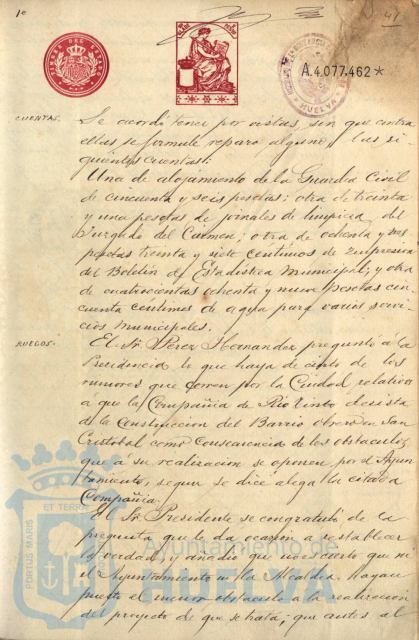 1º
41
A.4.077.462*
HUELVA
CUENTAS.
Se acordó tener por vistas, sin que contra
ellas se formule reparo alguno, las si-
guientes cuentas:
Una de alojamiento de la Guardia Civil
de cincuenta y seis pesetas; otra de treinta
y una pesetas de jornales de limpieza del
Juzgado del Carmen; otra de ochenta y tres
pesetas treinta y siete centimos de impresion
del Boletin de Estadística Municipal; y otra
de cuatrocientas ochenta y nueve pesetas cin-
cuenta céntimos de agua para varios servi-
cios municipales.
RUEGOS.
El Sr. Pérez Hernandez preguntó á la
Presidencia lo que haya de cierto de los
rumores que corren por la Ciudad relativos
a que la Compañia de Rio Tinto desista
de la Construccion del Barrio obrero en San
Cristobal como consecuencia de los obstaculos
que á su realizacion se oponen por el Ayun-
tamiento, segun se dice alega la citada
Compañia.
El Sr. Presidente se congratuló de la
pregunta que le da ocasion á establecer
la verdad, y añadió que no es cierto que ni
el Ayuntamiento ni la Alcaldia hayan
puesto el menor obstaculo a la realizacion
del proyecto de que se trata; que antes al
PORTUS MARIS
ET TERRE
Ayuntamiento de
HUELVA